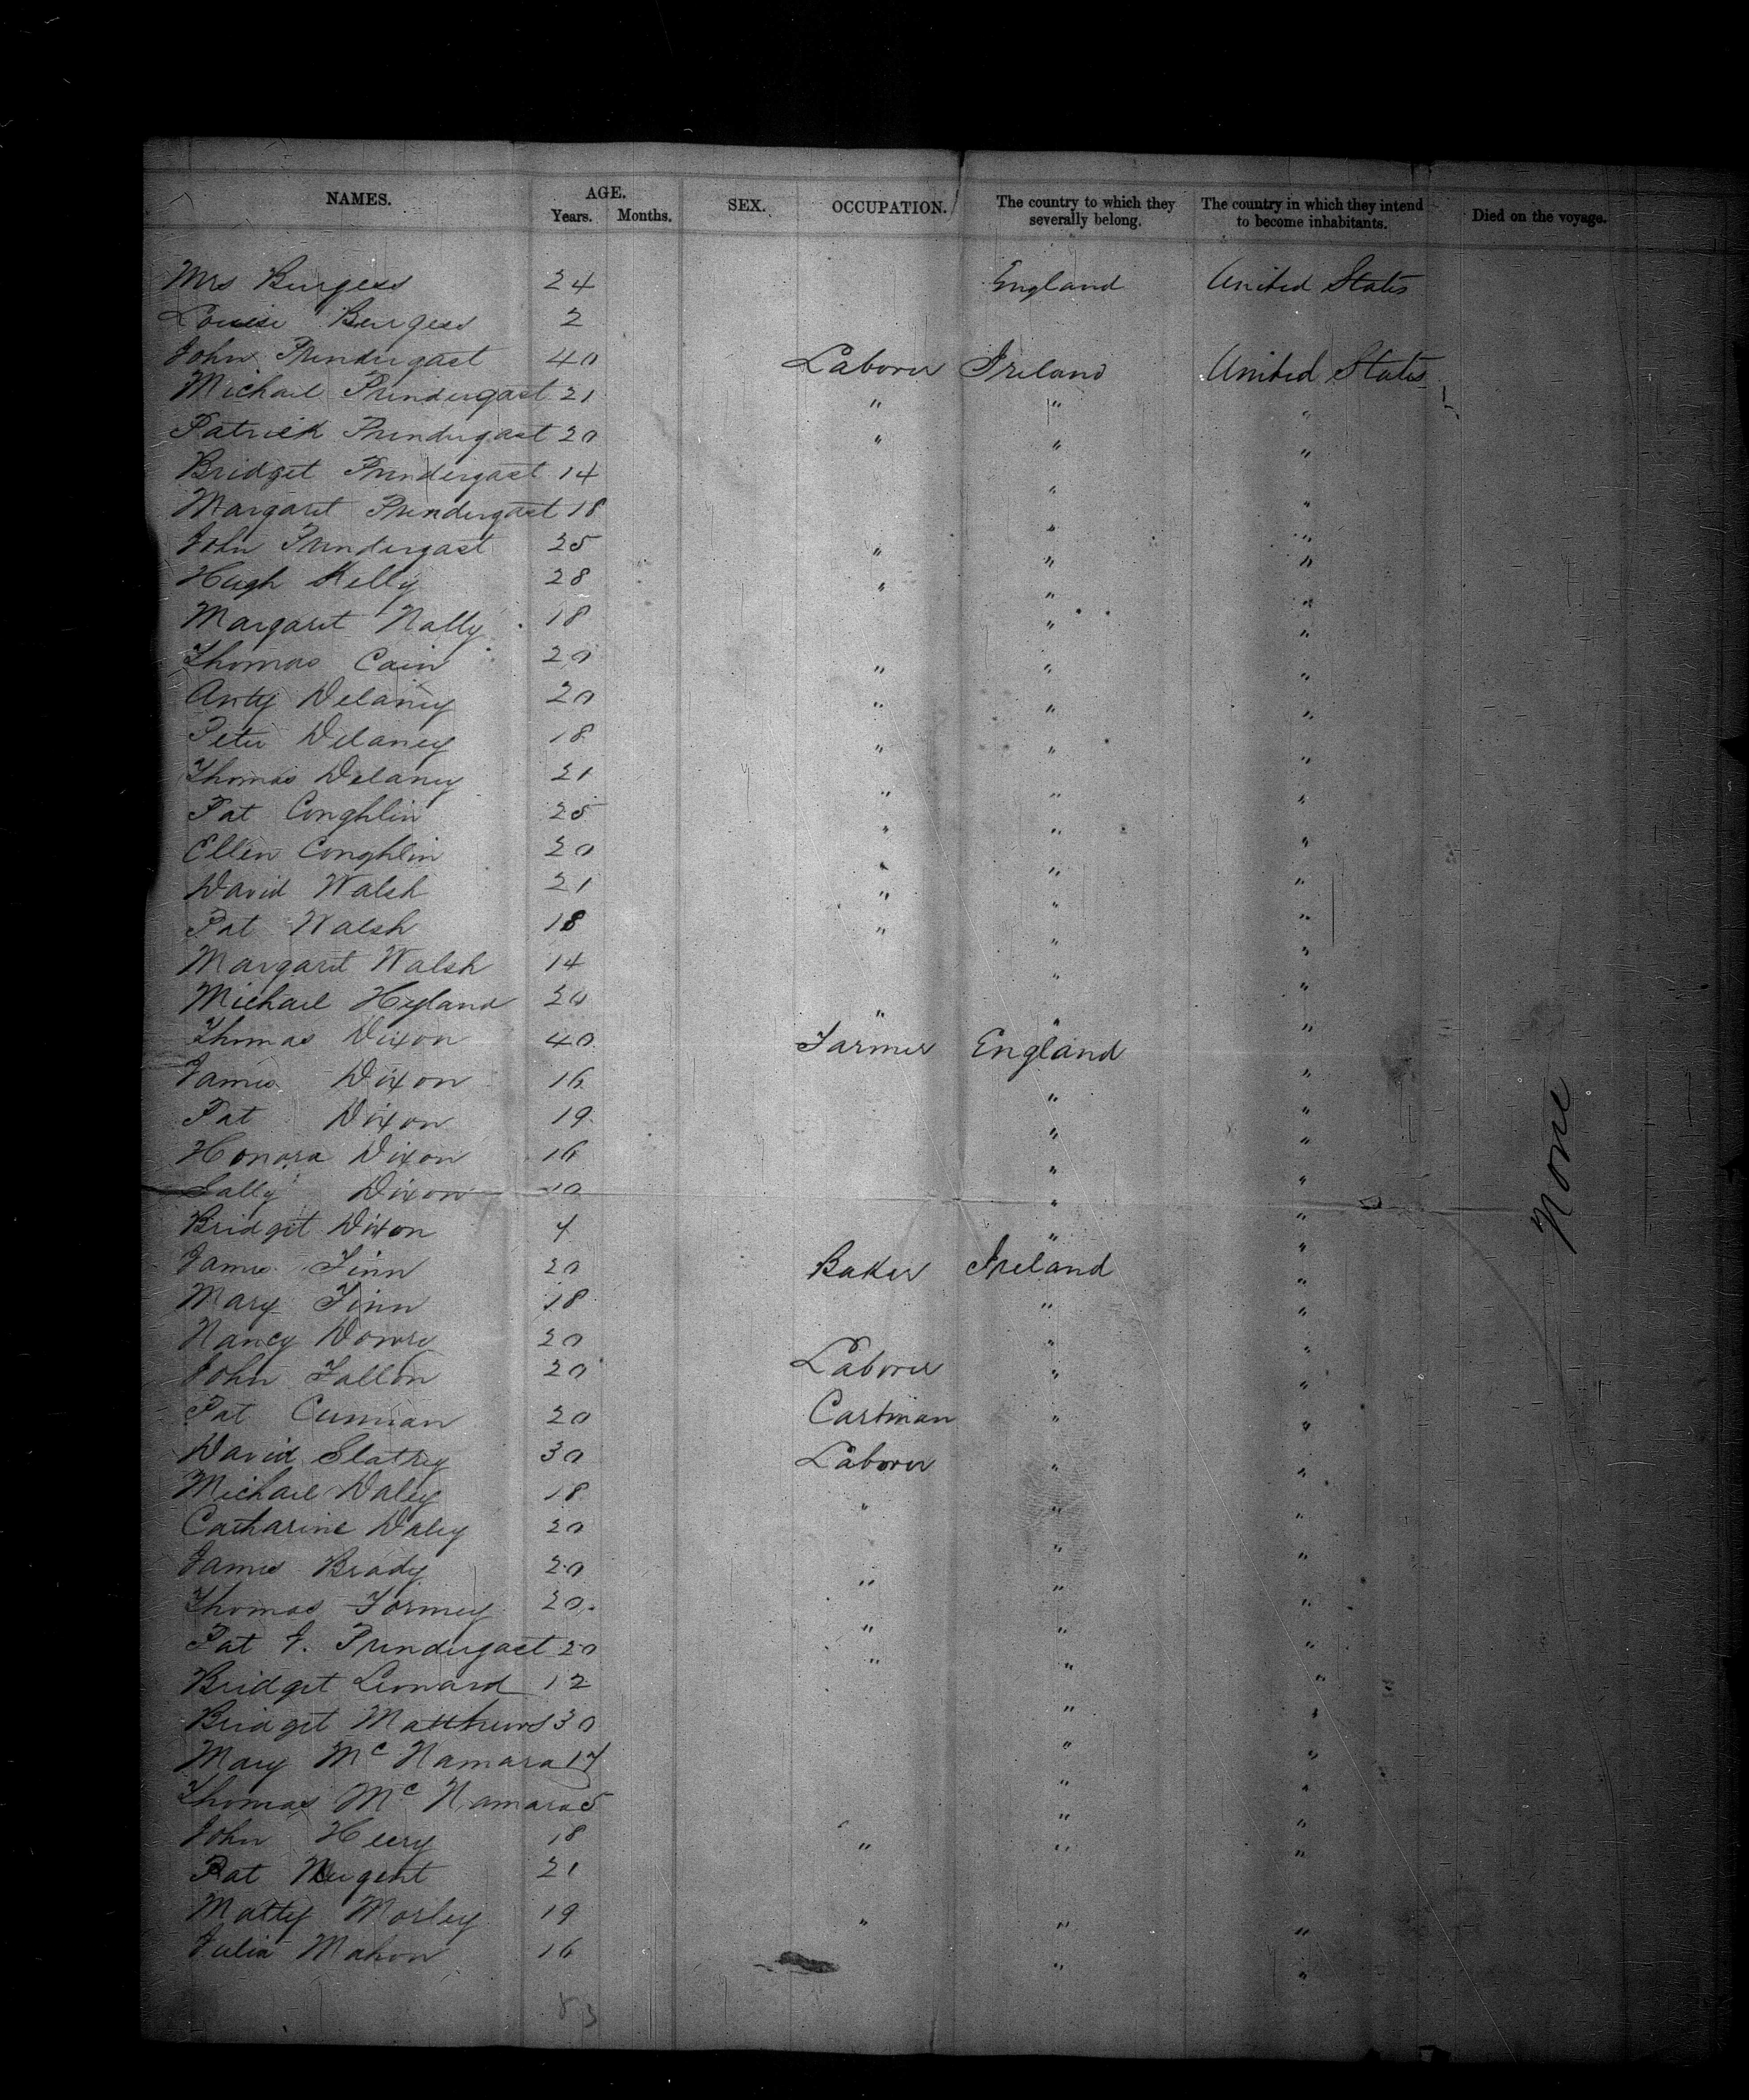 NAMES. AGE. SEX. OCCUPATION. The country to which they severally belong. The country in which they intend to become inhabitants. Died on the voyage.
Years. Months.
Mrs Burgess 24 England United States
Louise Burgess 2
John Prendergast 40 Laborer Ireland United States
Michael Prendergast 21 " " "
Patrick Prendergast 20 " " "
Bridget Prendergast 14 " "
Margaret Prendergast 18 " "
John Prendergast 25 " " "
Hugh Kelly 28 " " "
Margaret Nally 18 " "
Thomas Cain 20 " " "
Anty Delaney 20 " " "
Peter Delaney 18 " " "
Thomas Delaney 21 " " "
Pat Coughlin 25 " " "
Ellen Coughlin 20 " " "
David Walsh 21 " " "
Pat Walsh 18 " " "
Margaret Walsh 14 " "
Michael Hyland 20 " " "
Thomas Dixon 40 Farmer England "
James Dixon 16 " "
Pat Dixon 19 " "
Honora Dixon 16 " "
Sally Dixon 10 " "
Bridget Dixon 4 " "
James Finn 20 Baker Ireland "
Mary Finn 18 " "
Nancy 20 " "
John Fallon 20 Laborer " "
Pat 20 Cartman " "
David Slattry 30 Laborer " "
Michael Daley 18 " " "
Catharine Daley 20 " "
James Brady 20 " " "
Thomas Formey 20 " " "
Pat J. Prendergast 20 " " "
Bridget Leonard 12 " "
Bridget Matthews 30 " "
Mary Mc Namara 17 " "
Thomas Mc Namara 5 " "
John Heery 18 " " "
Pat Nugent 21
Matty Morley 19 " " "
Julia Mahon 16 " "
None
83